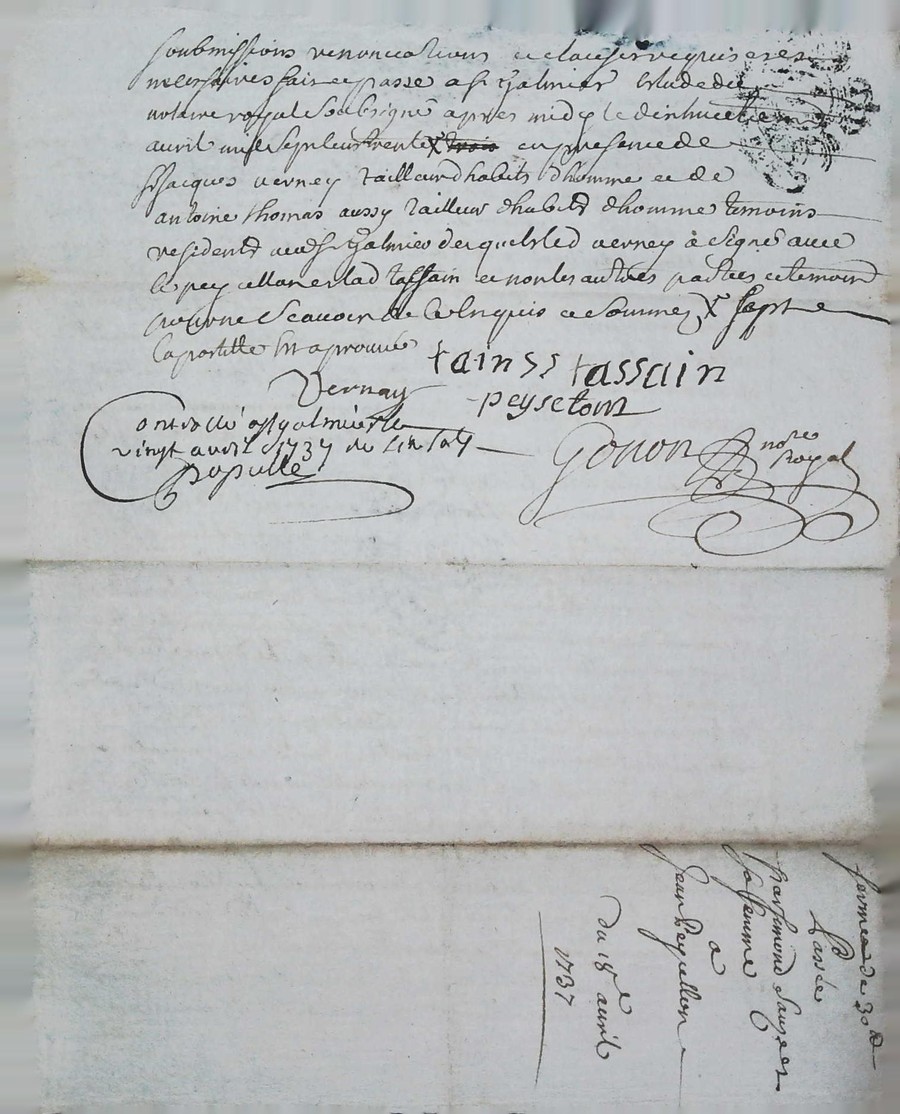 soubmissions renonciations et clauses requises et
necessaires fait et passé a st galmier etude du
notaire royal soubsigné apres midy le dixhuictieme
avril mil sept cent trente X trois en presence de
sr jacques verney tailleur dhabits dhomme et de
antoine thomas aussy tailleur dhabits dhomme temoins
residents aud st galmier desquels led verney à signé avec
led peycellon et lad tassain et non les autres parties et temoins
pour ne scavoir de ce enquis et sommés X sept
lapostille sus aprouvée
tainss tassain
Vernay
peyselon
Controllé a st galmier le
vingt avril 1737 recu
Populle
Gonon nore
Royal
ferme de 30 ll
Passée
par
sa femme
a
Jean Peycellon
du 18e avril
1737